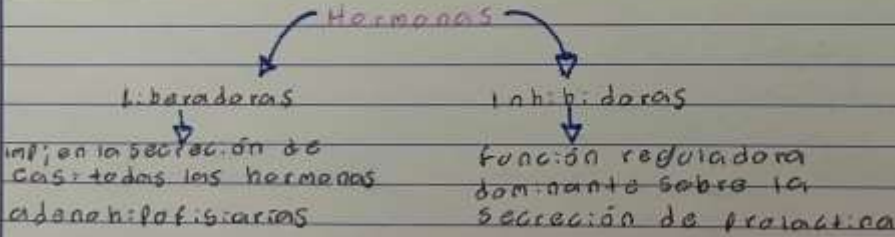 Hormonas
Liberadoras
Inhibidoras
en la secreción de
casi todas las hormonas
adenohipofisiarias
función reguladora
dominante sobre la
secreción de prolactina